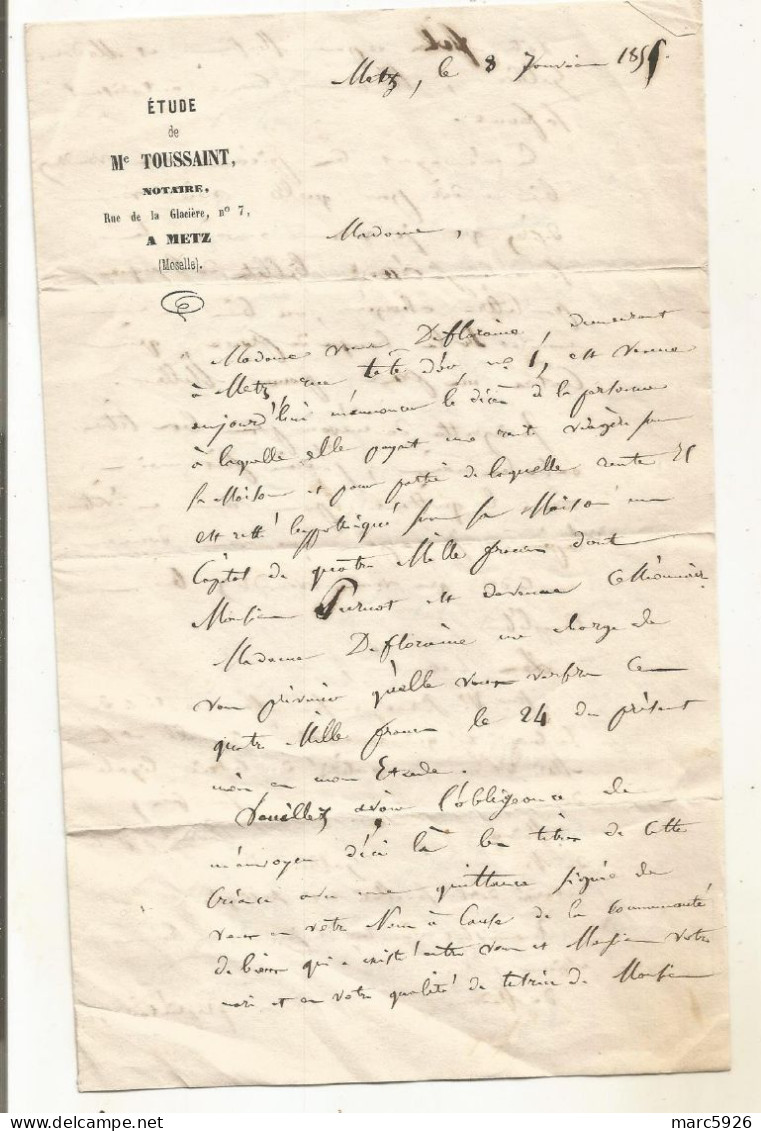 Metz, le 8 Janvier 1855.
ÉTUDE
de
Me TOUSSAINT,
NOTAIRE,
Rue de la Glacière, no 7,
A METZ
(Moselle).
Madame,
Madame veuve Defloraine, demeurant
à Metz, rue tête d'or, no 1, est venue
aujourd'hui m'annoncer le décès de la personne
à laquelle elle payait une rente viagère pour
sa Maison et pour partie de laquelle rente
est resté hypothéqué sur sa Maison un
Capital de quatre Mille francs dont
Monsieur est devenu Cessionnaire
Madame Defloraine me charge de
vous prévenir qu'elle vous versera ces
quatre Mille francs le 24 du présent
mois en mon Etude.
Veuillez avoir l'obligeance de
m'envoyer d'ici là les titres de cette
Créance avec une quittance signée de
vous en votre Nom à Cause de la Communauté
de biens qui a existé entre vous et Monsieur votre
mari et en votre qualité de tutrice de Monsieur
marc5926